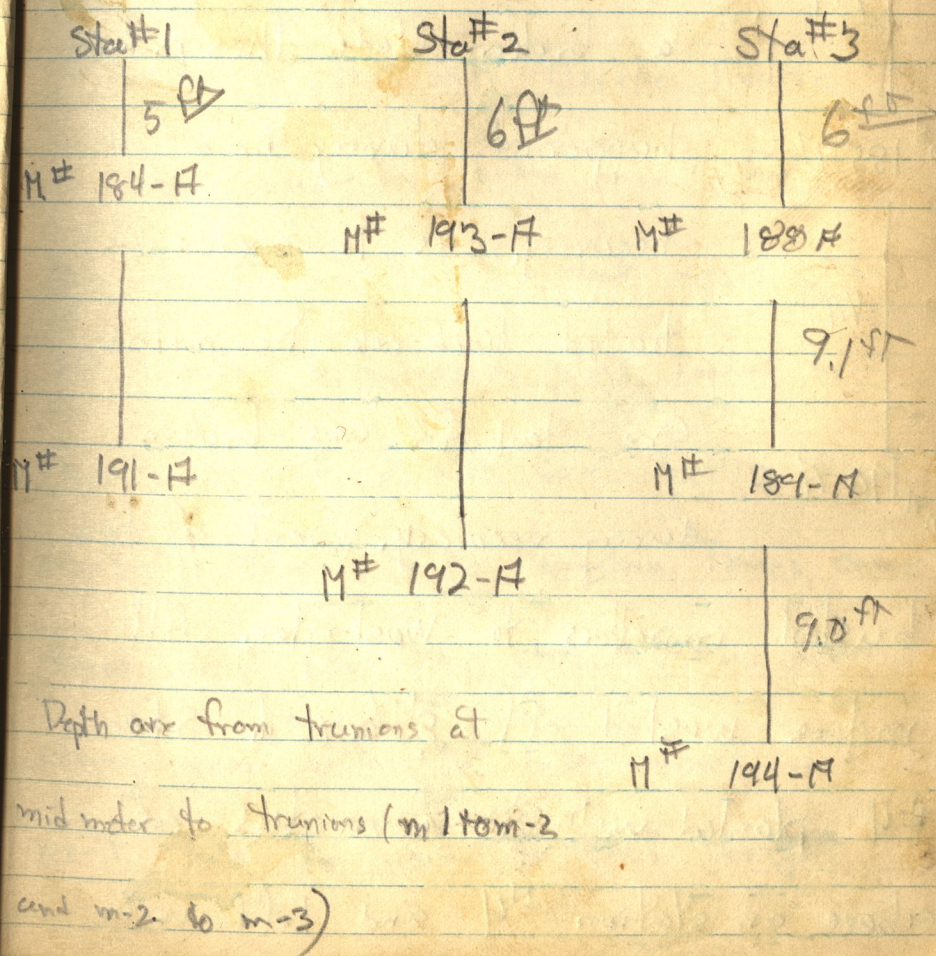 Sta#1 Sta#2 Sta#3
5 ft 6 ft 6 ft
M# 184-A
M# 193-A M# 188 A
9.1 ft
M# 191-A M# 189-A
M# 192-A
9.0 ft
Depth are from trunions at
M# 194-A
mid meter to trunions (m 1 to m-2
and m-2 to m-3)